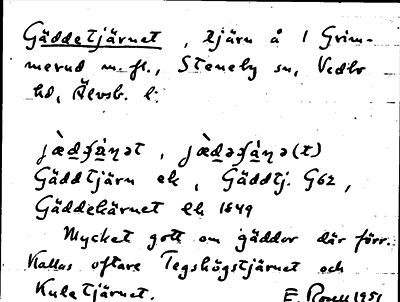 Gäddetjärnet, tjärn å 1 Grim-
merud m. fl., Steneby sn, Vedbo
hd, Älvsb. l:
jæ̀dʒạ̀ṇət, jæ̀dəʒạ̀ṇə(t)
Gäddtjärn ek, Gäddtj. G62,
Gäddekärnet lk 1849
Mycket gott om gäddor där förr.
Kallas oftare Tegshögstjärnet och
Kuletjärnet.
E. 1951